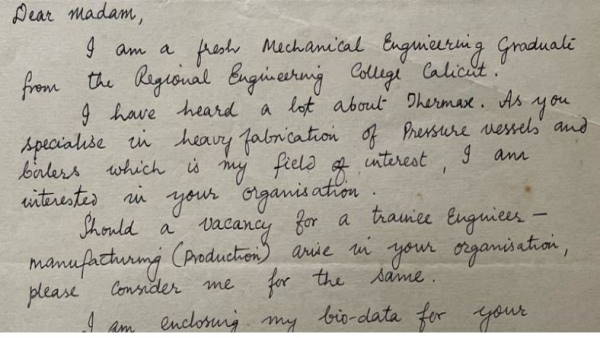 Dear Madam,
I am a fresh Mechanical Engineering Graduate
from the Regional Engineering College Calicut.
I have heard a lot about Thermax. As you
specialise in heavy fabrication of Pressure vessels and
boilers which is my field of interest, I am
interested in your organisation.
Should a vacancy for a trainee Engineer –
manufacturing (Production) arise in your organisation,
please consider me for the same.
I am enclosing my bio-data for your